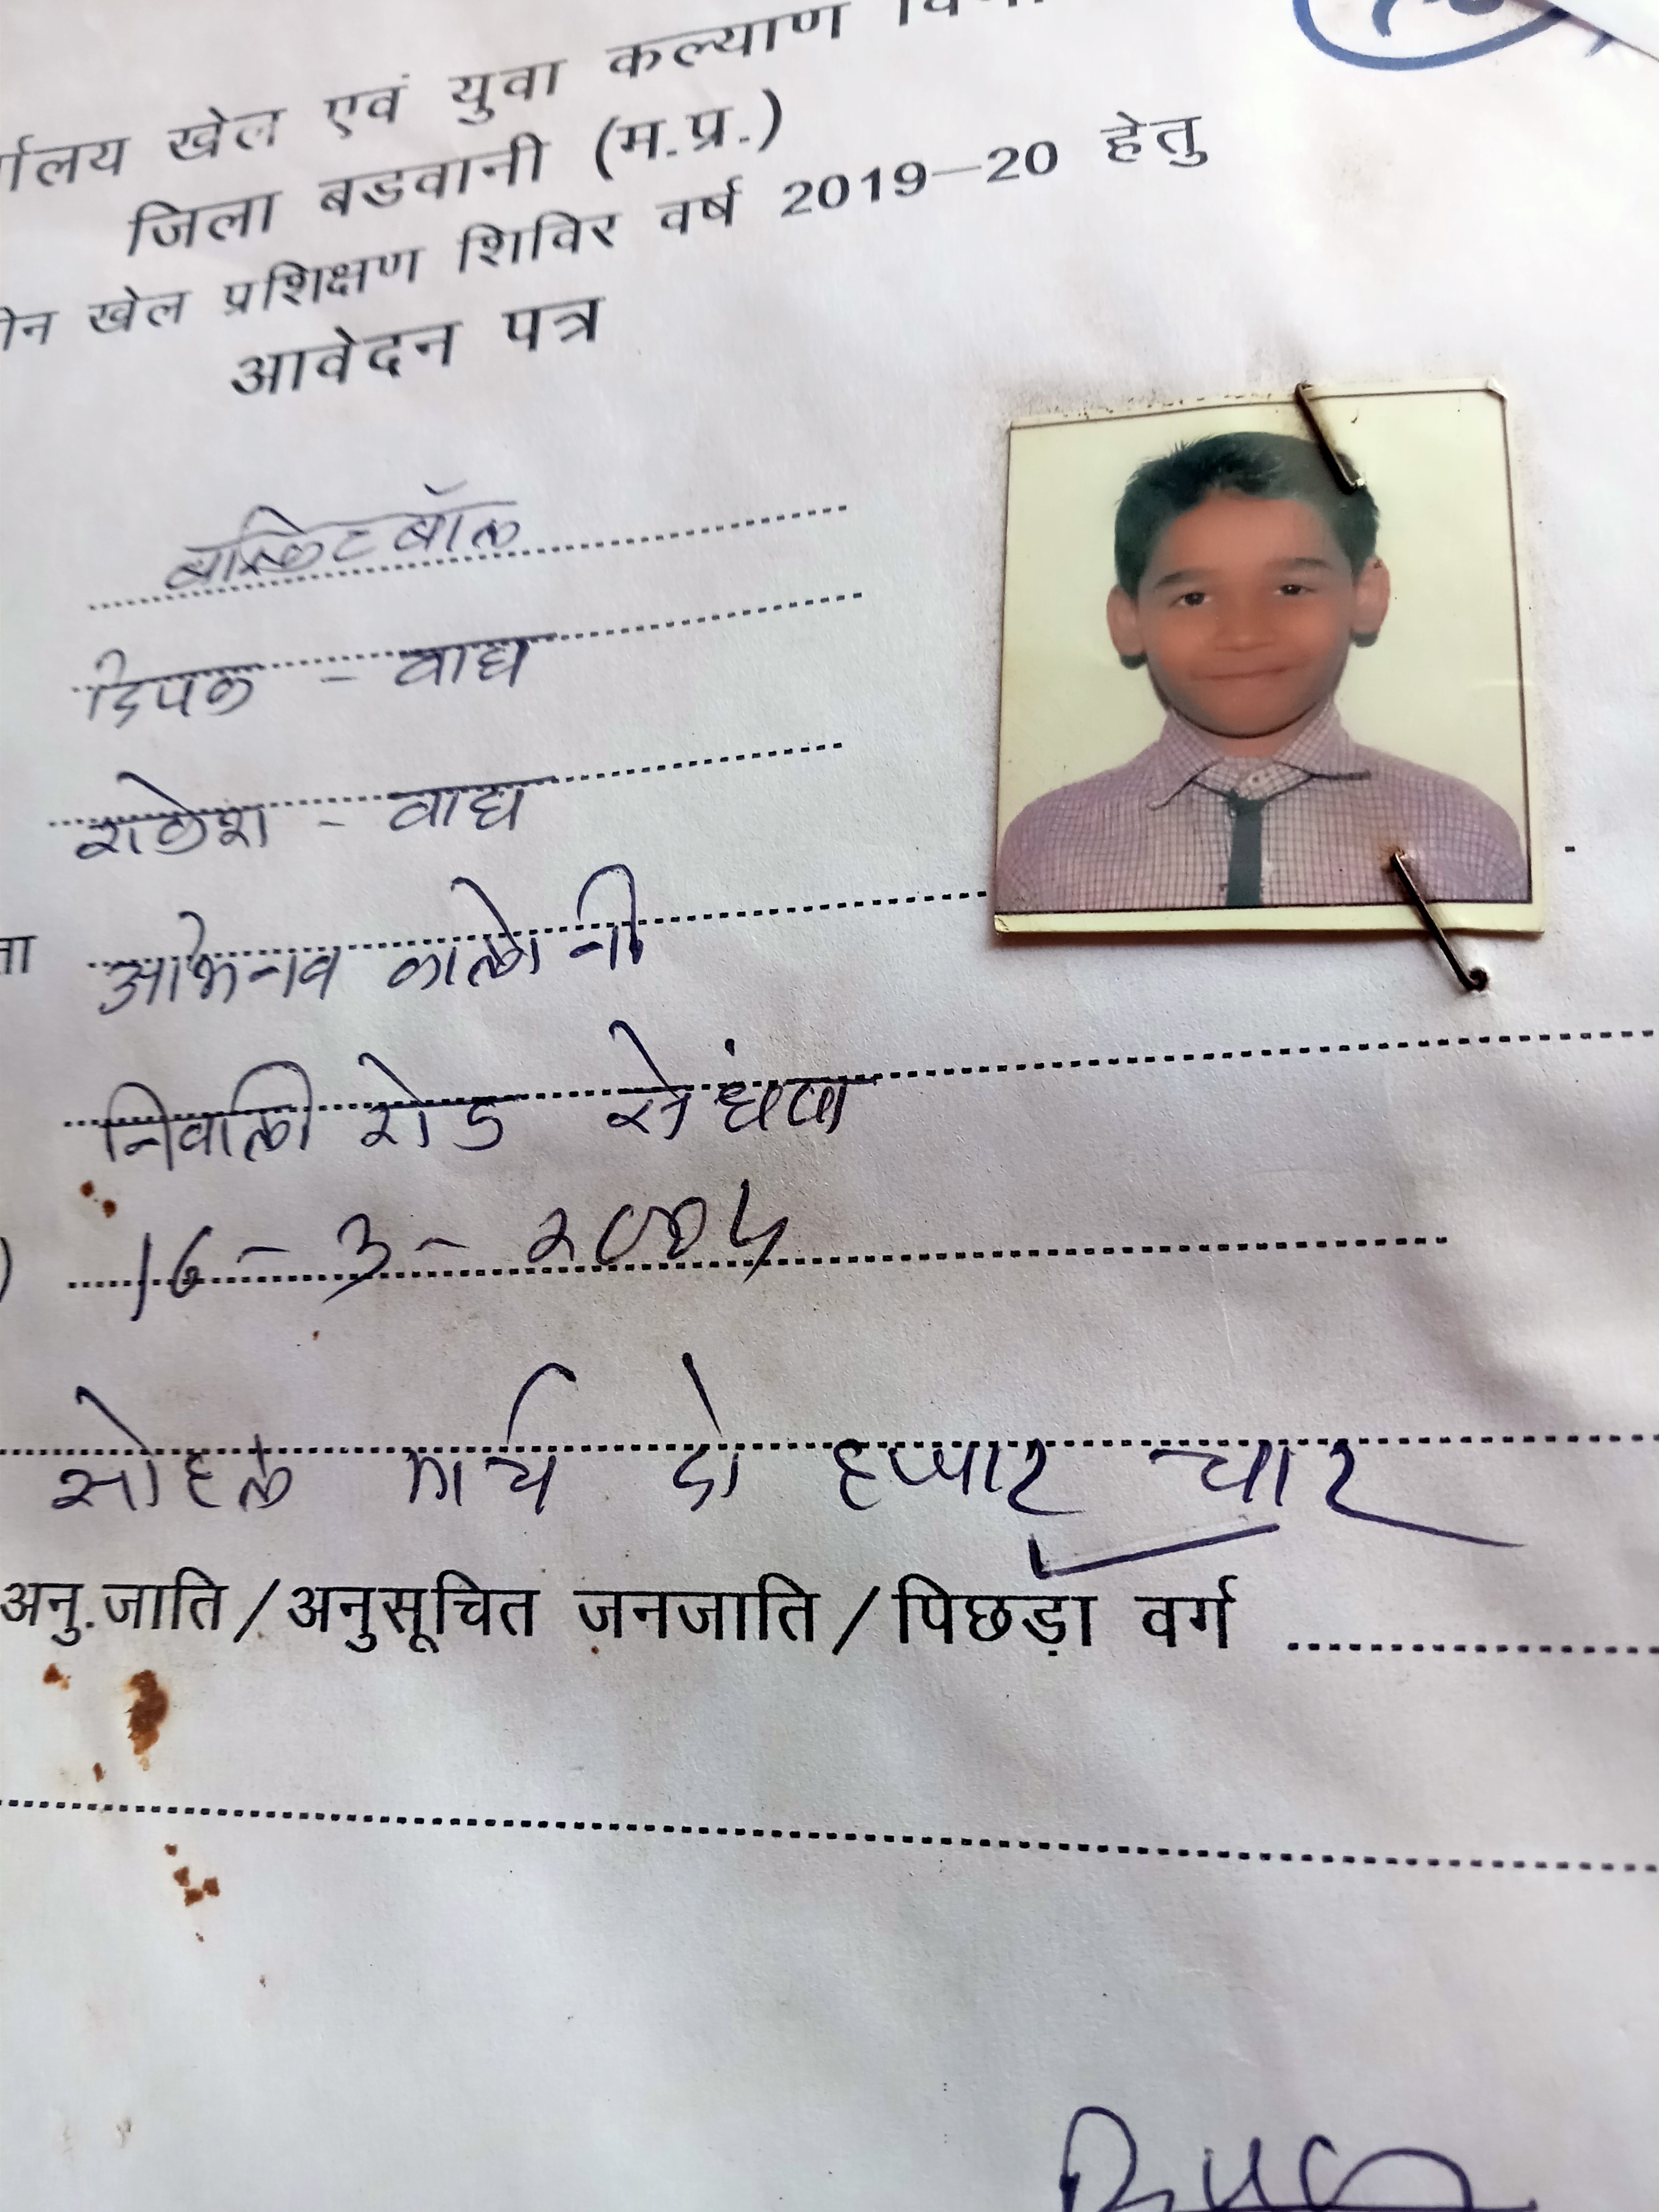 खेल एवं युवा कल्याण
जिला बडवानी (म.प्र.)
खेल प्रशिक्षण शिविर वर्ष 2019–20 हेतु
आवेदन पत्र
बास्किटबॉल
दिपक - वाघ
राकेश - वाघ
अभिनव कालोनी
निवाली रोड सेंधवा
16 - 3 - 2004
सोहल मार्च दो हजार चार
अनु.जाति / अनुसूचित जनजाति / पिछड़ा वर्ग